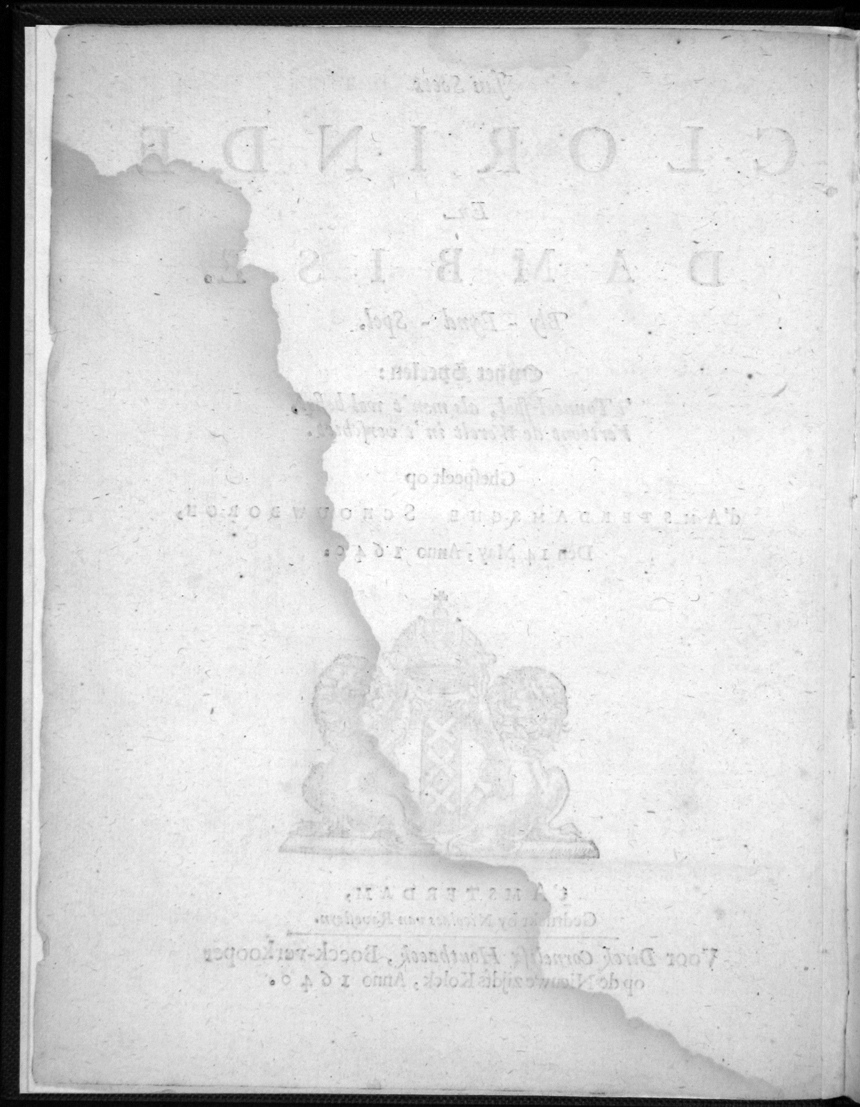 CLORINDE
En
DAMBISE.
Bly - Eynd - Spel.
Onder Speelen:
't Tonneel-spel, als men 't wel besiet,
Vertoont de Werelt in 't verschiet.
Ghespeelt op
d'AMSTERDAMSCHE SCHOUWBORGH,
Den 14 May, Anno 1640.
t'AMSTERDAM,
Gedruckt by Nicolaes van Ravesteyn.
Voor Dirck Cornelisz Houthaeck, Boeck-verkooper
op de Nieuwe zijdts Kolck, Anno 1640.